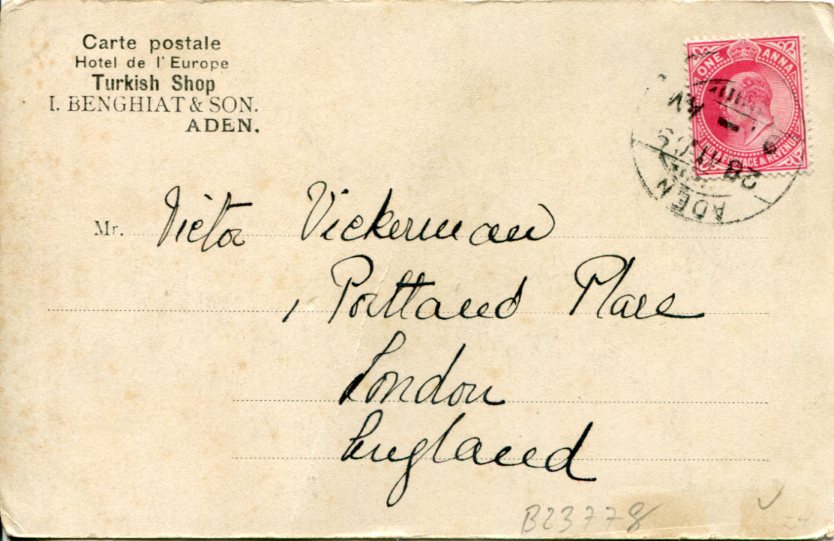 Carte postale
Hotel de l'Europe
Turkish Shop
I. BENGHIAT & SON.
ADEN.
ONE ANNA
INDIA POSTAGE & REVENUE
ADEN
Mr. Victor Vickerman
1 Portland Place
London
England
B23778